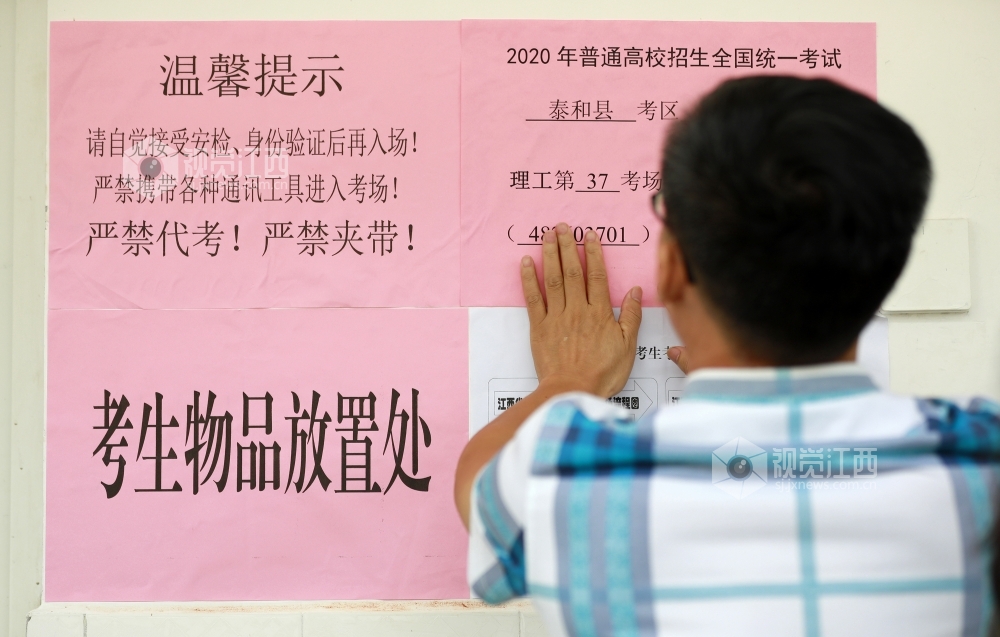 温馨提示
请自觉接受安检、身份验证后再入场！
严禁携带各种通讯工具进入考场！
严禁代考！严禁夹带！
2020年普通高校招生全国统一考试
泰和县 考区
理工第 37 考场
考生物品放置处
考生
江西
流程图
视觉江西
视觉江西
sjjxnews.com.cn